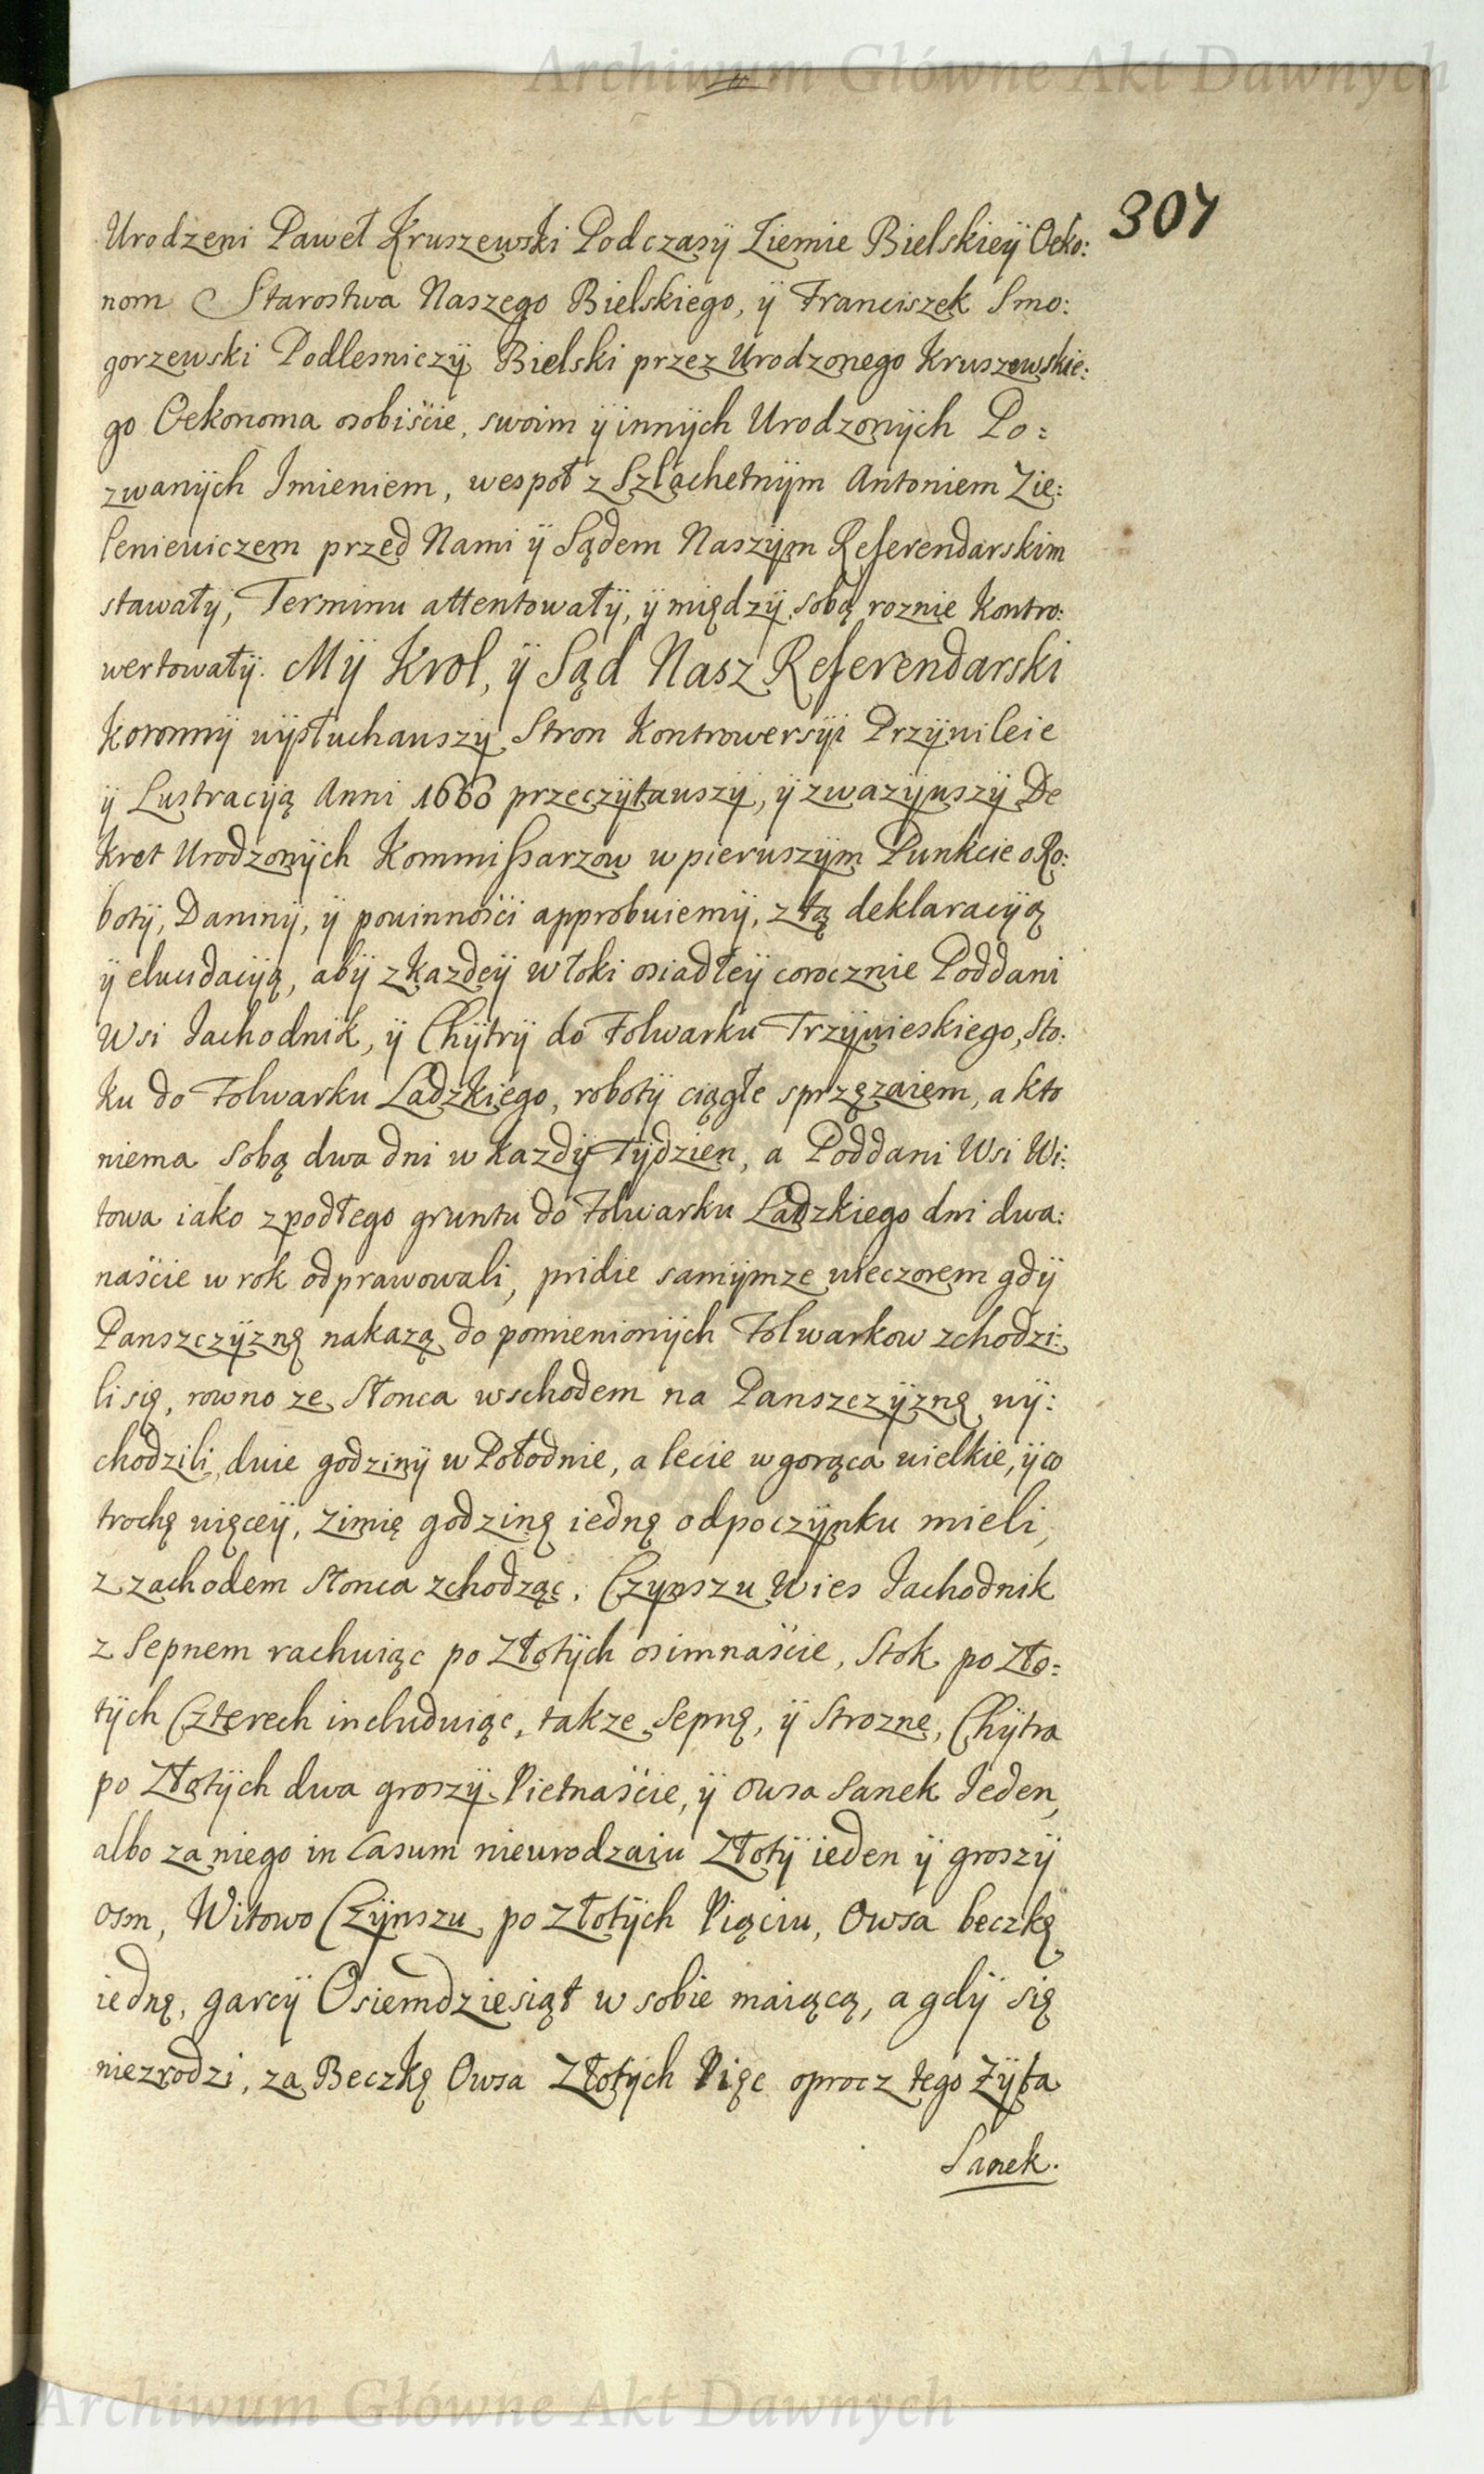 Archiwum Główne Akt Dawnych
307
Urodzeni Paweł Kruszewski Podczasÿ Ziemie Bielskieÿ Oeko:
nom Starostwa Naszego Bielskiego, ÿ Franciszek Smo:
gorzewski Podlesniczÿ Bielski przez Urodzonego Kruszewskie:
go Oekonoma osobiście, swoim ÿ innÿch Urodzonÿch Po=
zwanÿch Jmieniem, wespoł z Szlachetnÿm Antoniem Zie:
leniewiczem przed Nami ÿ Sądem Naszÿm Referendarskim
stawałÿ, Terminu attentowałÿ, ÿ międzÿ sobą roznie kontro:
wertowałÿ. Mÿ Krol, ÿ Sąd Nasz Referendarski
Koronnÿ wÿsłuchawszÿ Stron Kontrowersÿi Przÿwileie
ÿ Lustracÿą Anni 1660 przeczÿtawszÿ, ÿ zwazÿwszÿ De
kret Urodzonÿch Kommissarzow w pierwszÿm Punkcie o Ro:
botÿ, Daninÿ, ÿ powinności approbuiemÿ, z tą deklaracÿą
ÿ elucidacÿą, abÿ z kazdeÿ włoki osiadłeÿ corocznie Poddani
Wsi Jachodnik, ÿ Chÿtrÿ do Folwarku Trzÿwieskiego, Sto:
ku do Folwarku Ladzkiego, robotÿ ciągłe sprzęzaiem, a kto
niema sobą dwa dni w kazdÿ Tÿdzien, a Poddani Wsi Wi:
towa iako z podłego gruntu do Folwarku Ladzkiego dni dwa:
naście w rok odprawowali, pridie samÿmze wieczorem gdÿ
Panszczÿznę nakazą do pomienionÿch Folwarkow zchodzi:
li się, rowno ze Słonca wschodem na Panszczÿznę wÿ:
chodzili, dwie godzinÿ w Połodnie, a lecie w gorąca wielkie, ÿ co
trochę więceÿ, zimię godzinę iednę odpoczÿnku mieli,
z zachodem Słonca zchodząc. Czÿnszu Wies Jachodnik
z Sepnem rachuiąc po Złotÿch osimnaście, Stok po Zło=
tÿch Czterech includuiąc, takze Sepnę, ÿ Strozne, Chÿtra
po Złotÿch dwa groszÿ Pietnaście, ÿ Owsa Sanek Jeden,
albo za niego in Casum nieurodzaiu Złotÿ ieden ÿ groszÿ
osm, Witowo Czÿnszu po Złotÿch Pięciu, Owsa beczkę
iednę, garcÿ Osiemdziesiąt w sobie maiącą, a gdÿ się
niezrodzi, za Beczkę Owsa Złotÿch Pięc oprocz tego Żÿta
Sanek.
Archiwum Główne Akt Dawnych